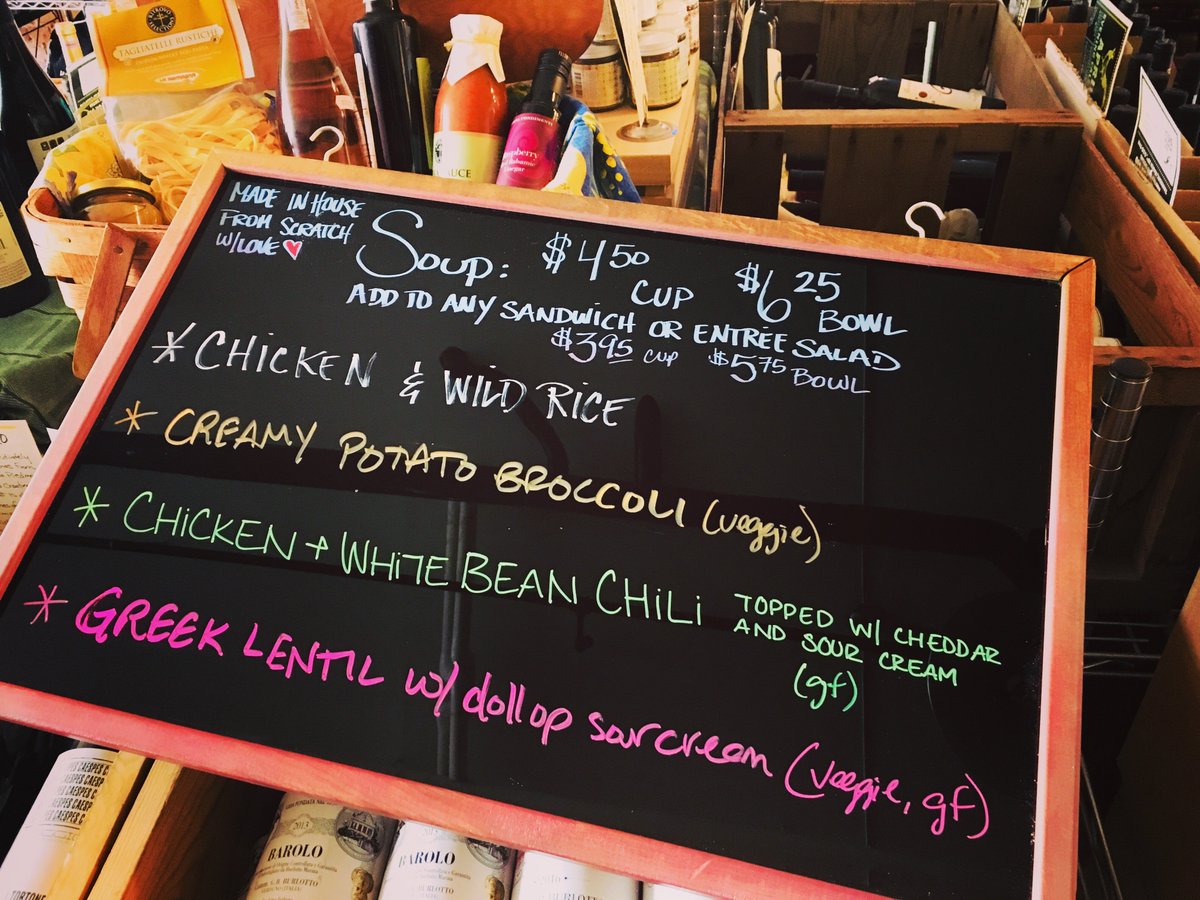 TAGLIATELLE RUSTICHE
Raspberry
Balsamic
Vinegar
MADE IN HOUSE
FROM SCRATCH
W/LOVE
SOUP: $4.50 CUP $6.25 BOWL
ADD TO ANY SANDWICH OR ENTRÉE SALAD
$3.95 CUP $5.75 BOWL
* CHICKEN & WILD RICE
* CREAMY POTATO BROCCOLI (veggie)
* CHICKEN + WHITE BEAN CHILI TOPPED W/ CHEDDAR
AND SOUR CREAM
(gf)
* GREEK LENTIL w/ dollop sour cream (veggie, gf)
CAESPES
2013
BAROLO
BAROLO